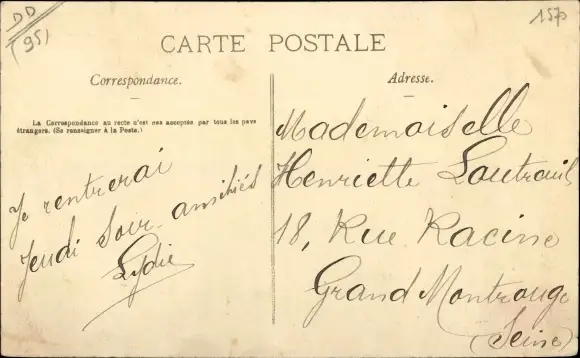 DD
(95)
1570
CARTE POSTALE
Correspondance.
La Correspondance au recto n'est pas acceptée par tous les pays
étrangers. (Se renseigner à la Poste.)
Je rentrerai
Jeudi soir. amitiés
Lydie
Adresse.
Mademoiselle
Henriette Lautreuil
18, Rue Racine
Grand Montrouge
(Seine)